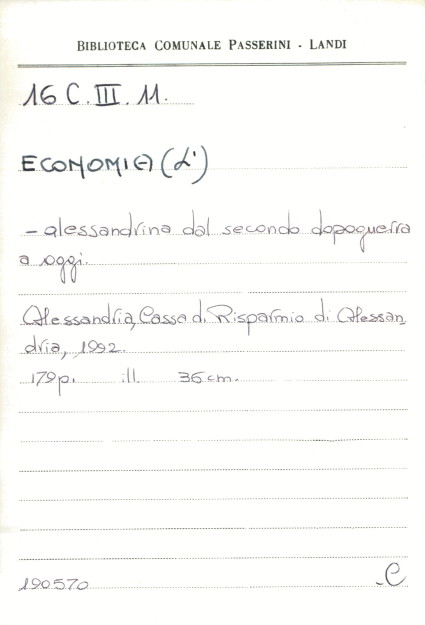 BIBLIOTECA COMUNALE PASSERINI - LANDI
16 C. III. 11.
ECONOMIA (L')
- alessandrina dal secondo dopoguerra
a oggi.
Alessandria, Cassa di Risparmio di Alessan_
dria, 1992.
179 p. ill. 36 cm.
190570
-C